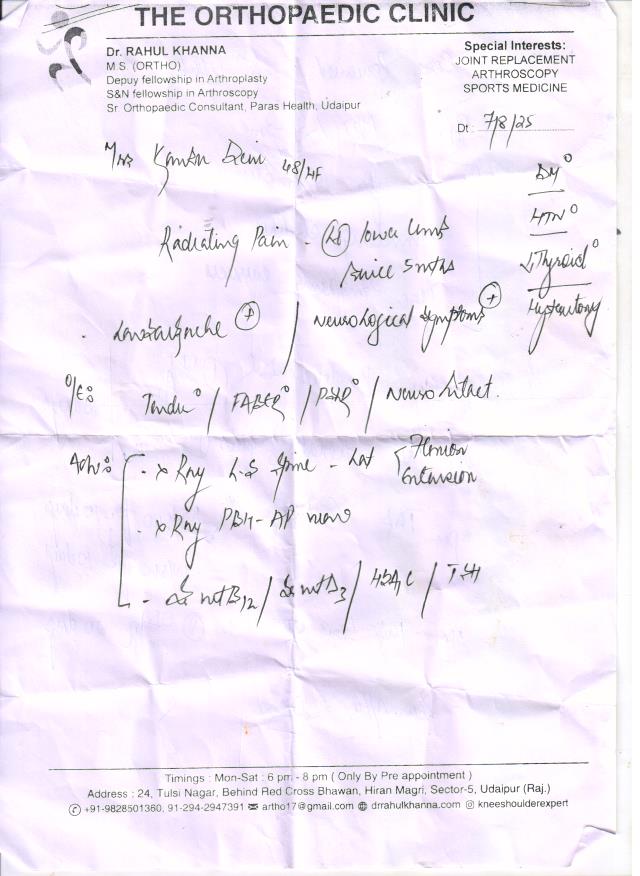 THE ORTHOPAEDIC CLINIC
Dr. RAHUL KHANNA
M.S. (ORTHO)
Depuy fellowship in Arthroplasty
S&N fellowship in Arthroscopy
Sr. Orthopaedic Consultant, Paras Health, Udaipur
Special Interests:
JOINT REPLACEMENT
ARTHROSCOPY
SPORTS MEDICINE
Dt: 7/8/25
Mrs 48/F
DM°
HTN°
Thyroid°
Radiating Pain - lower limb
since 5 mths
Neurological symptoms +
O/E: / FABER° / / Neuro Intact.
Adv: - X Ray L-S Spine - Lat Flexion
Extension
- X Ray PBH - AP view
- Sr vit B12 / Sr vit D3 / HbA1C / TSH
Timings : Mon-Sat : 6 pm - 8 pm ( Only By Pre appointment )
Address : 24, Tulsi Nagar, Behind Red Cross Bhawan, Hiran Magri, Sector-5, Udaipur (Raj.)
+91-9828501360, 91-294-2947391 artho17@gmail.com drrahulkhanna.com kneeshoulderexpert